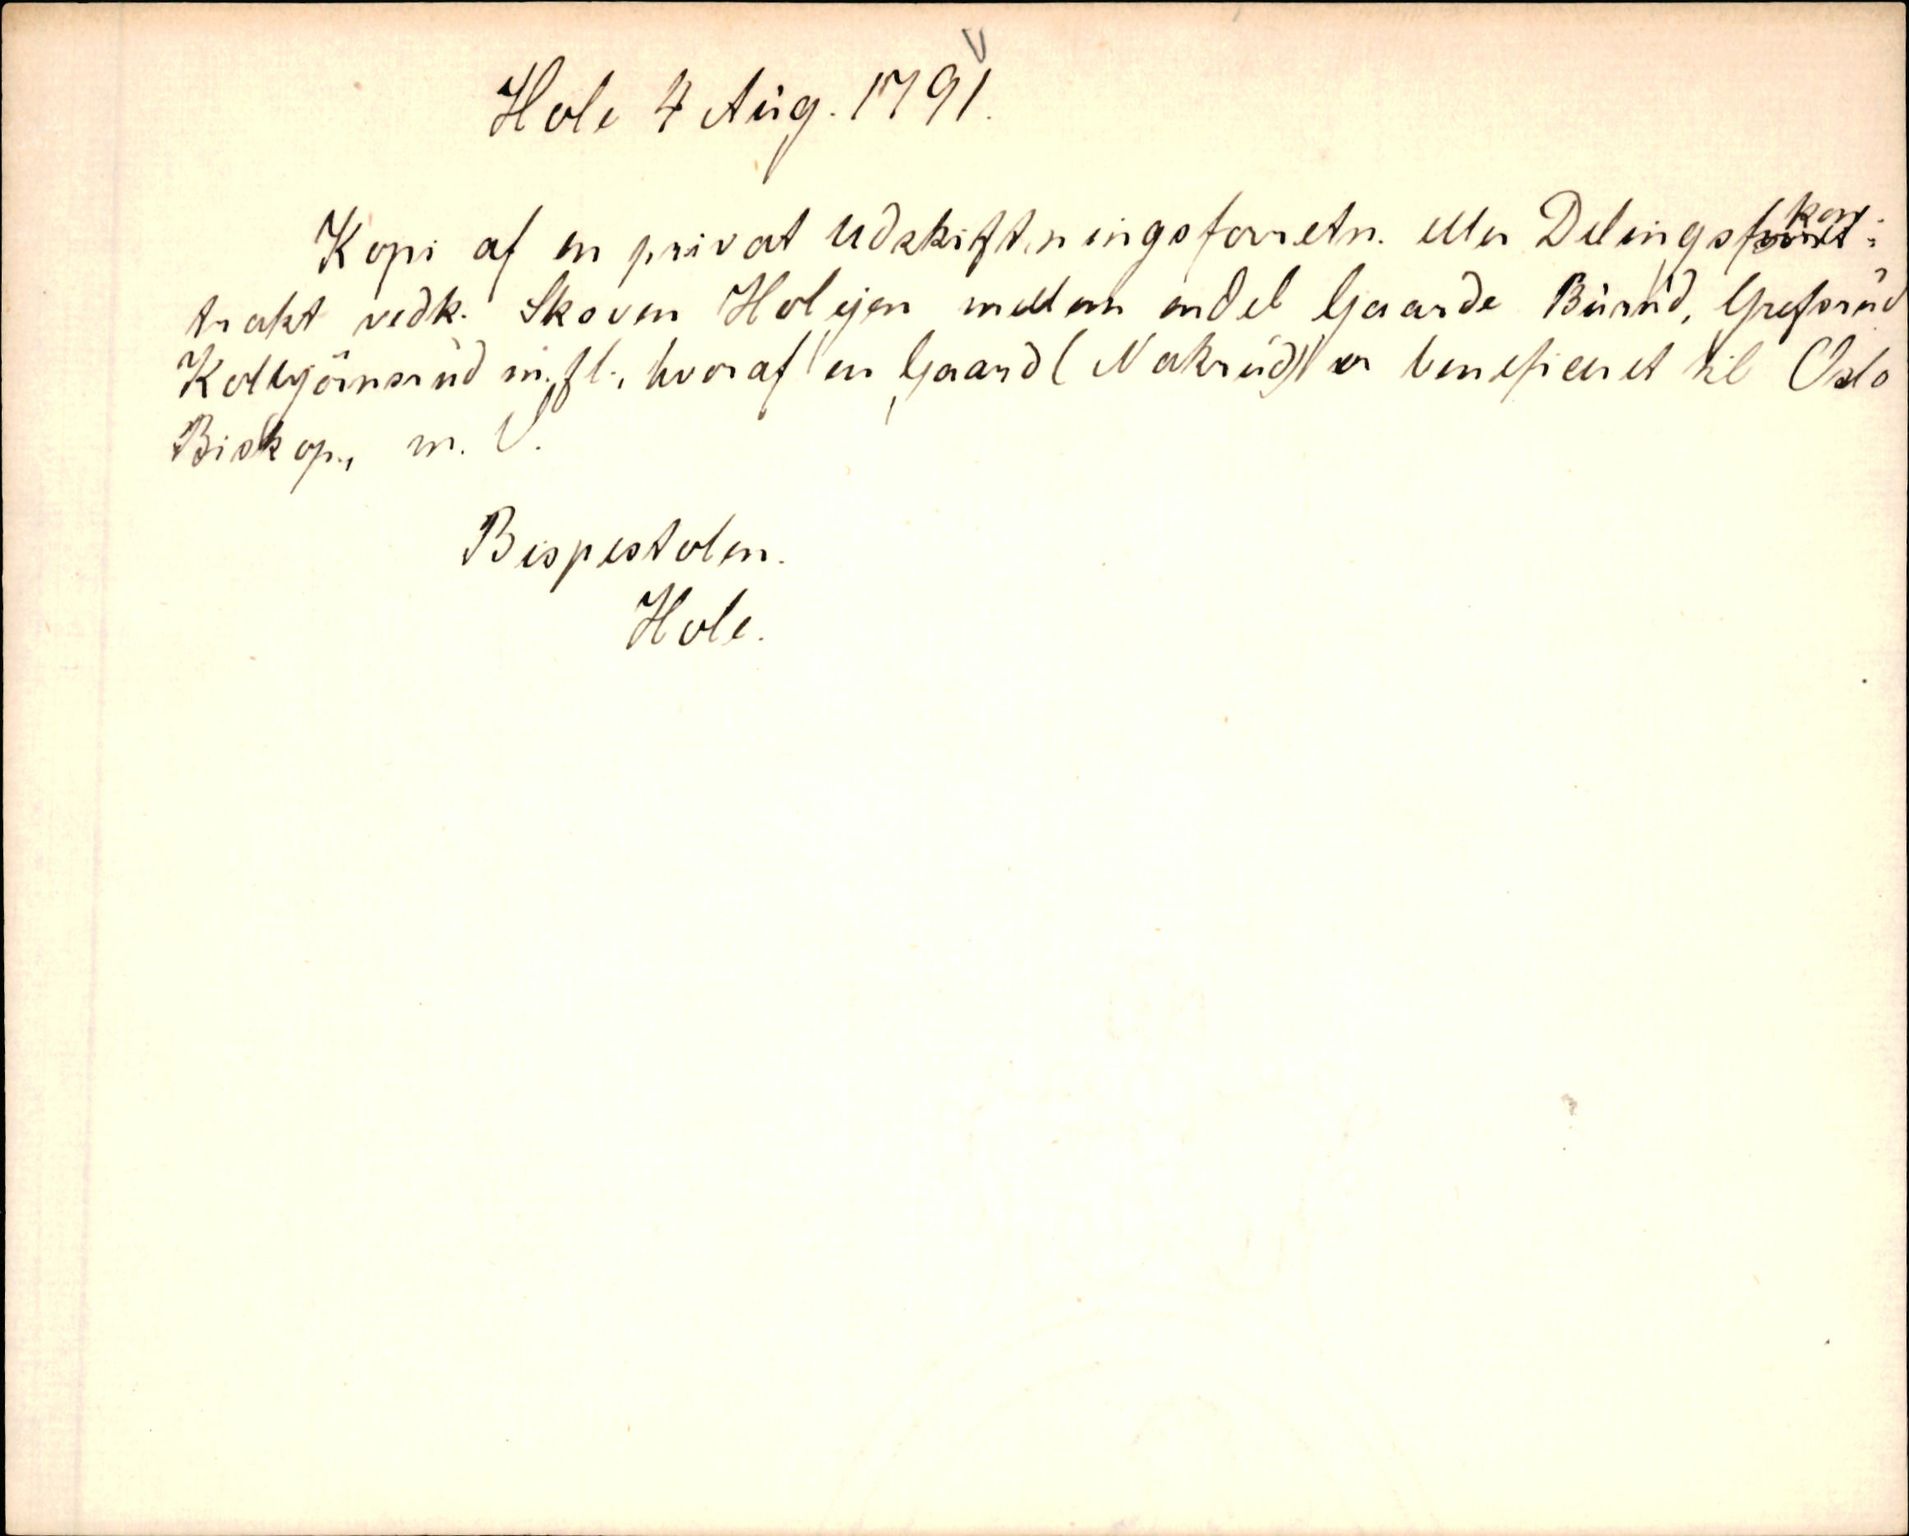 Hole 4 Aug. 1791.
Kopi af en privat Udskiftningsforretn. eller Delingskon-
trakt vedk. Skoven Holejen mellem endel Gaarde Burud, Grefsrud
Kolbjörnsrud m.fl., hvoraf en Gaard (Nakrud) er beneficeret til Oslo
Biskop., m. V.
Bispestolen.
Hole.